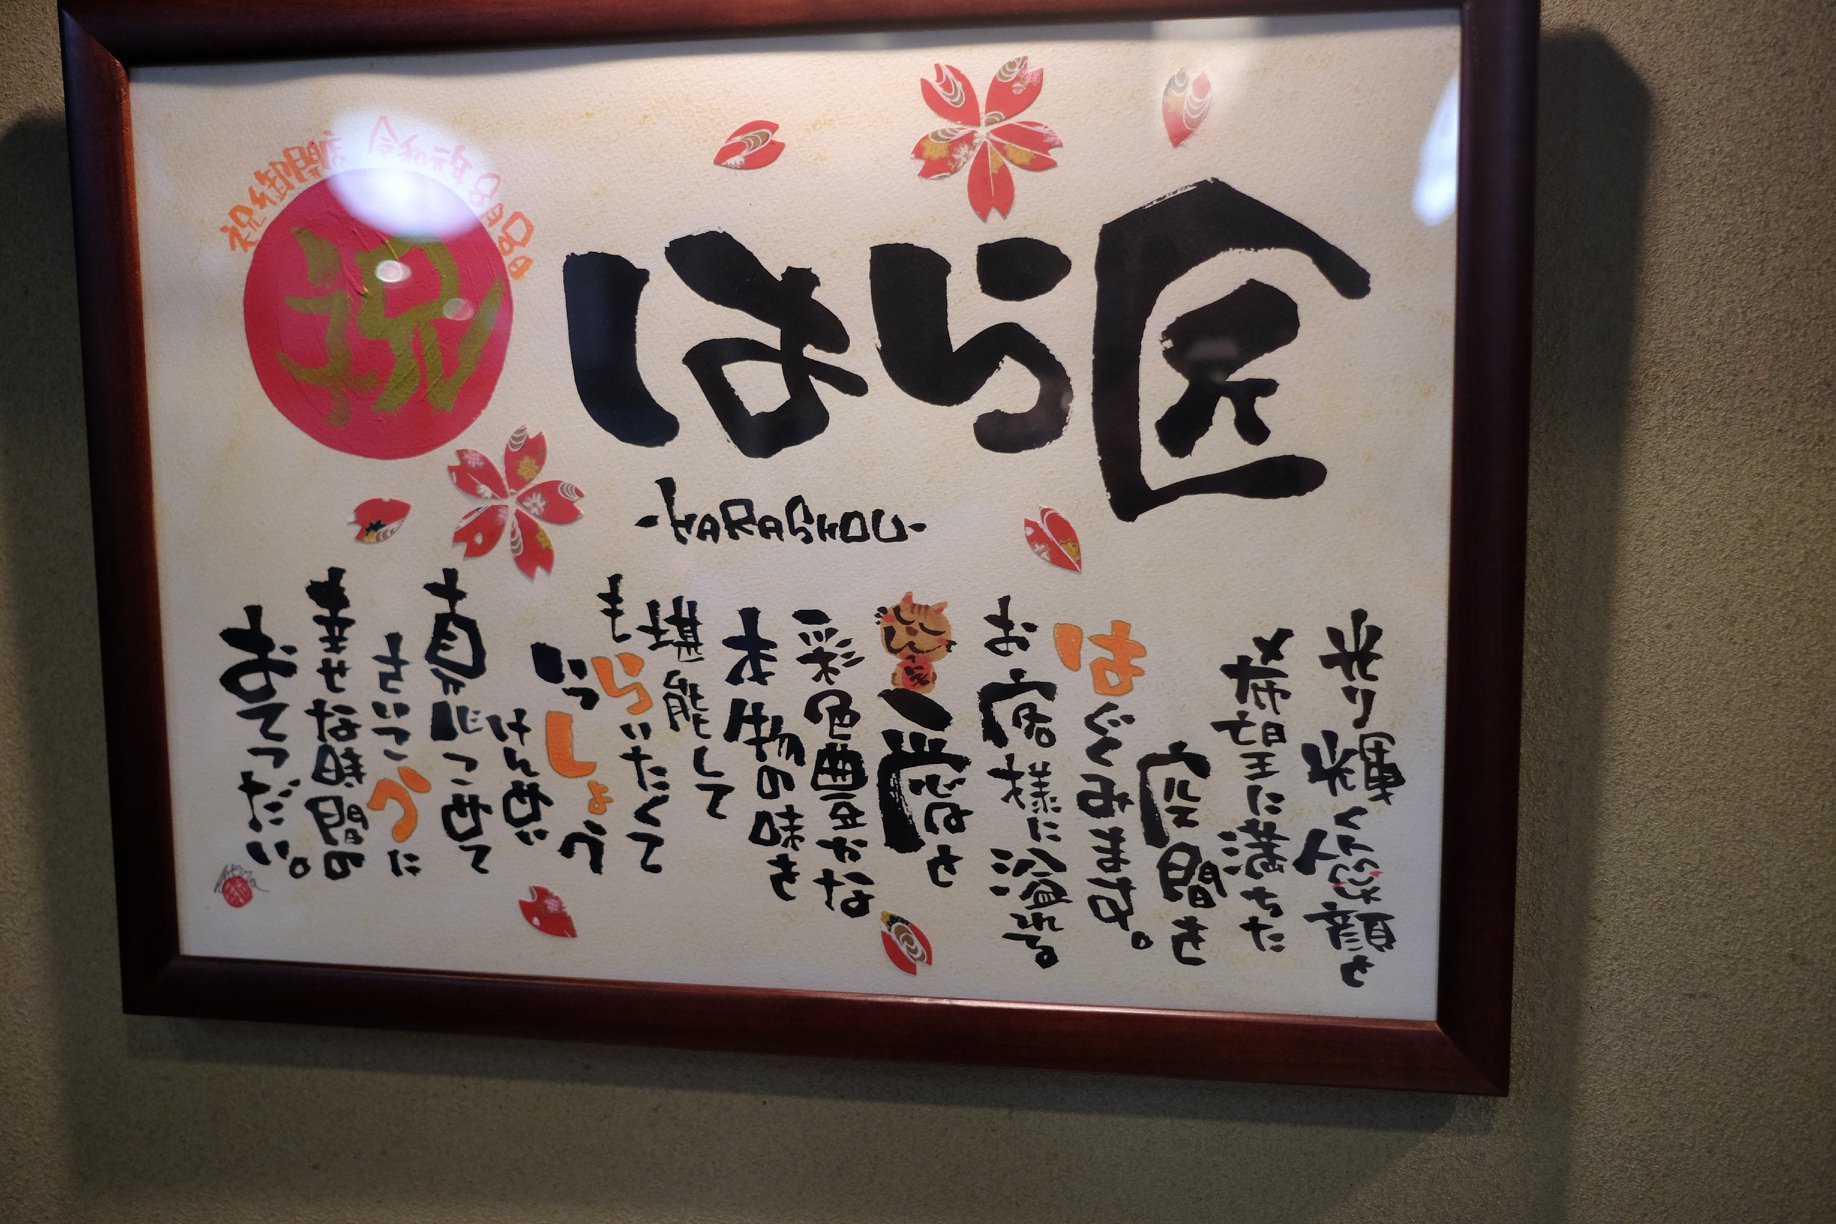 祝御開店 令和元年8月8日
祝
はら匠
-HARASHOU-
光り輝く笑顔と
希望に満ちた
空間を
はぐくみます。
お客様に溢れる
愛と
彩色豊かな
本物の味を
堪能して
もらいたくて
いっしょう
けんめい
真心こめて
さいこうに
幸せな時間の
おてつだい。